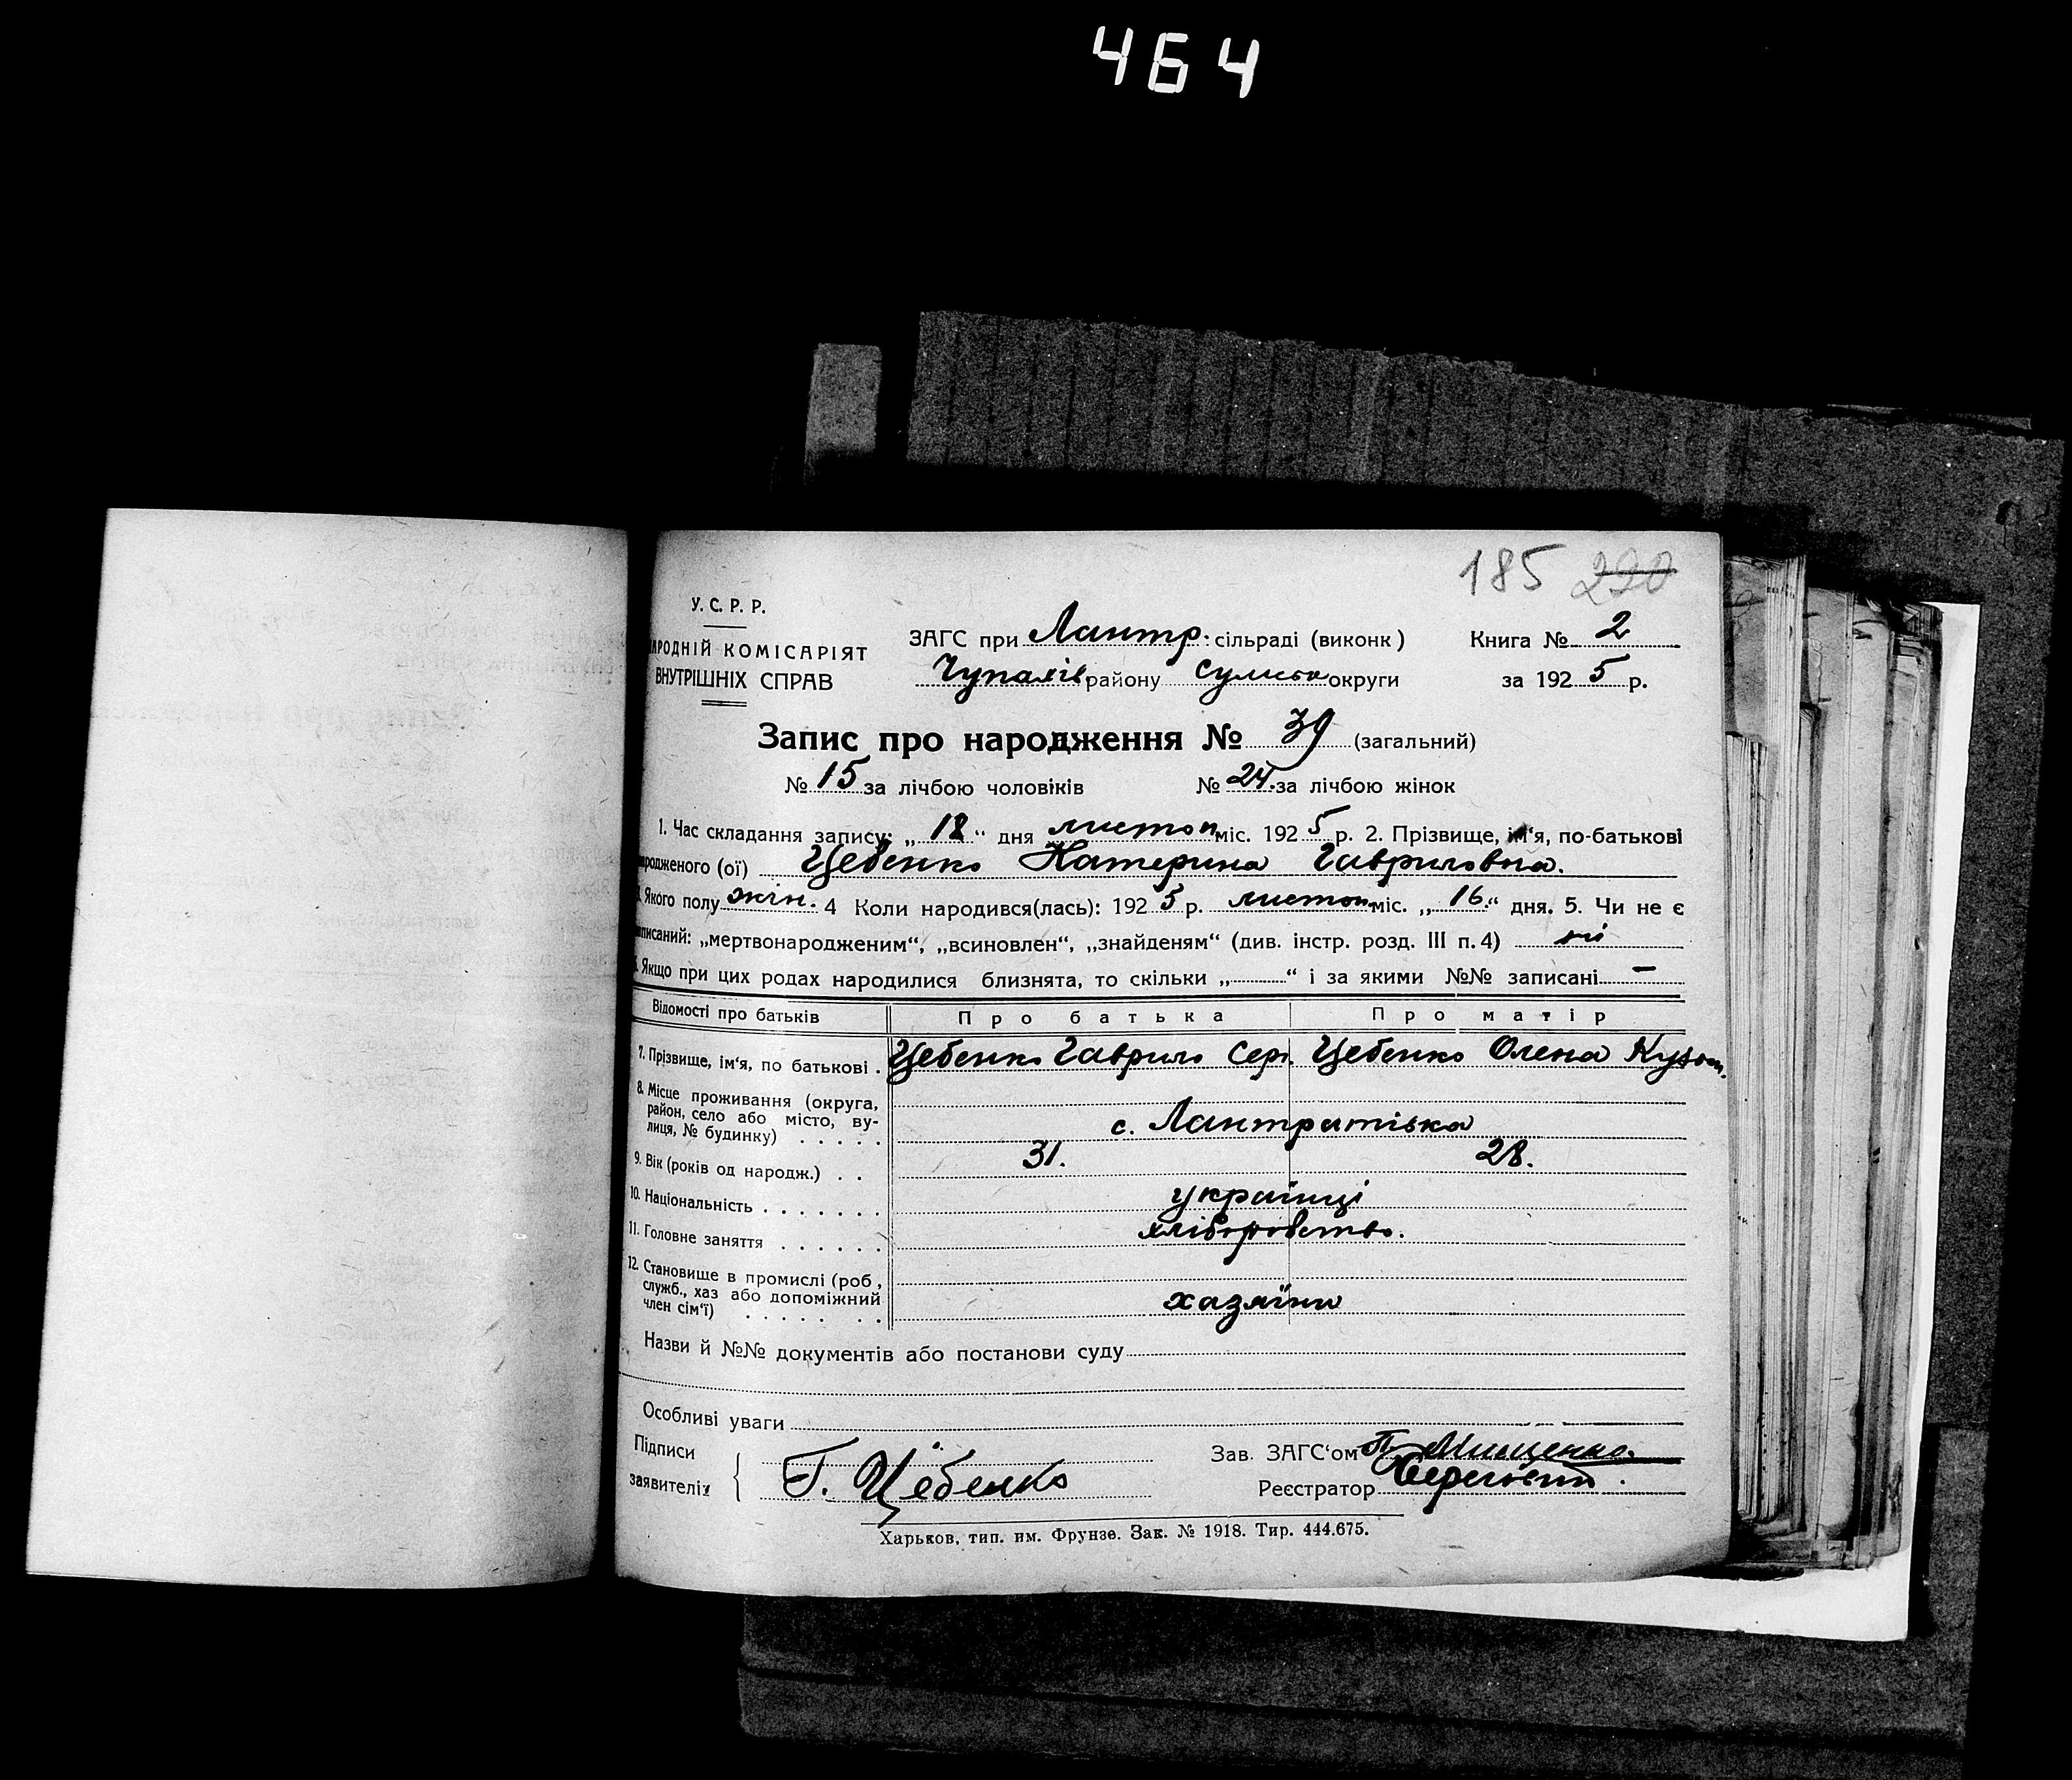 464
185 220
У. С. Р. Р.
АРОДНІЙ КОМІСАРІЯТ
ВНУТРІШНІХ СПРАВ
ЗАГС при Лантр. сільраді (виконк) Книга № 2
Чупахів району Сумськ округи за 192 5 р.
Запис про народження № 39 (загальний)
№ 15 за лічбою чоловіків № 24. за лічбою жінок
1. Час складання запису: „ 18 “ дня листоп міс. 192 5 р. 2. Прізвище, ім‘я, по-батькові
родженого (ої) Цебенко Катерина Гавриловна.
Якого полу жін. 4 Коли народився(лась): 192 5 р. листоп. міс. „ 16. “ дня. 5. Чи не є
писаний: „мертвонародженим“, „всиновлен“, „знайденям“ (див. інстр. розд. III п. 4) ні
Якщо при цих родах народилися близнята, то скільки „ “ і за якими №№ записані —
Відомості про батьків Про батька Про матір
7. Прізвище, ім‘я, по батькові . Цебенко Гаврило Сер. Цебенко Олена Кузьм.
8. Місце проживання (округа,
район, село або місто, ву-
лиця, № будинку) . . . . . с. Лантратівка
9. Вік (років од народж.) . . 31. 28.
10. Національність . . . . . . . українці
11. Головне заняття . . . . . . хліборобство.
12. Становище в промислі (роб,
служб., хаз або допоміжний
член сім‘ї) . . . . . . . хазяїни
Назви й №№ документів або постанови суду
Особливі уваги
Підписи
заявителів { Г. Цебенко
Зав. ЗАГС‘ом П. Мищенко
Реєстратор
Харьков, тип. им. Фрунзе. Зак. № 1918. Тир. 444.675.